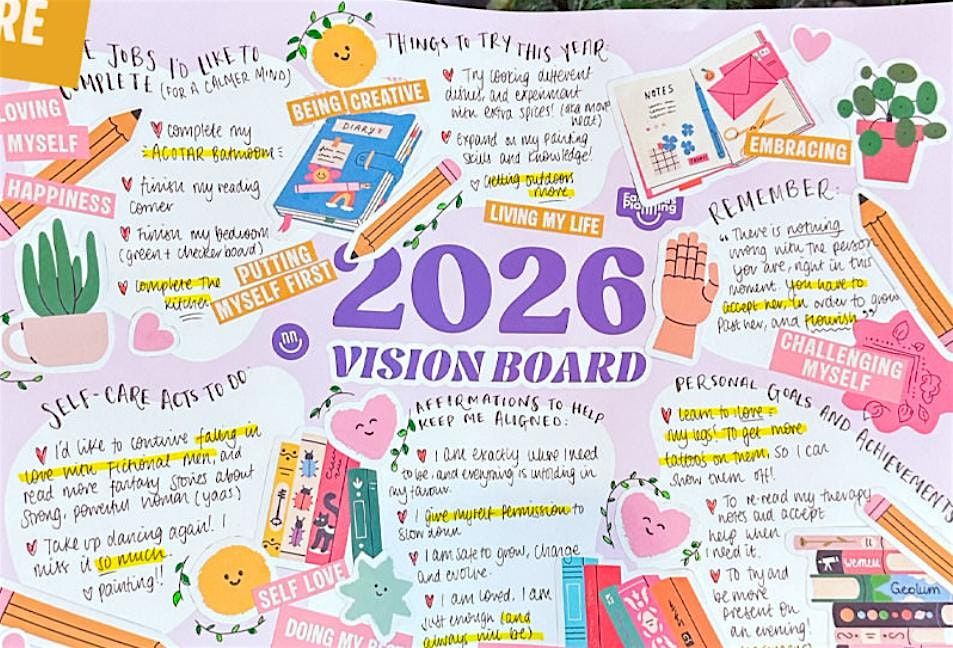 RE
JOBS I'D LIKE TO
COMPLETE (FOR A CALMER MIND)
LOVING
MYSELF
HAPPINESS
complete my
ACOTAR Bathroom
finish my reading
corner
Finish my bedroom
(green + checkerboard)
complete the
kitchen
PUTTING
MYSELF FIRST
BEING CREATIVE
DIARY
THINGS TO TRY THIS YEAR:
Try cooking different
dishes, and experiment
with extra spices! (aka more
heat)
Expand on my painting
skills and knowledge!
Getting outdoors
more
LIVING MY LIFE
NOTES
EMBRACING
REMEMBER:
"There is nothing
wrong with the person
you are, right in this
moment. You have to
accept her, in order to grow
past her, and flourish"
CHALLENGING
MYSELF
2026
VISION BOARD
nn
SELF-CARE ACTS TO DO
I'd like to continue falling in
love with fictional men, and
read more fantasy stories about
strong, powerful woman (yaas)
Take up dancing again! I
miss it so much.
painting!!
SELF LOVE
DOING MY
AFFIRMATIONS TO HELP
KEEP ME ALIGNED:
I am exactly where I need
to be, and everything is unfolding in
my favour.
I give myself permission to
slow down
I am safe to grow, change
and evolve.
I am loved. I am
just enough (and
always will be)
PERSONAL GOALS AND ACHIEVEMENTS
learn to love
my legs! To get more
tattoo's on them, so I can
show them off!
To re-read my therapy
notes and accept
help when
I need it.
To try and
be more
present on
an evening!